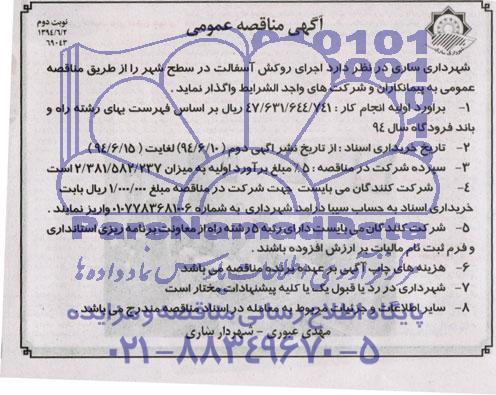 آگهی مناقصه عمومی
نوبت دوم
۱۳۹۴/۶/۲
۶۹۰۴۳
شهرداری ساری در نظر دارد اجرای روکش آسفالت در سطح شهر را از طریق مناقصه
عمومی به پیمانکاران و شرکت های واجد الشرایط واگذار نماید .
۱- برآورد اولیه انجام کار : ۴۷/۶۳۱/۶۴۴/۷۴۱ ریال بر اساس فهرست بهای رشته راه و
باند فرودگاه سال ۹۴
۲- تاریخ خریداری اسناد : از تاریخ نشر آگهی دوم (۹۴/۶/۱۰) لغایت (۹۴/۶/۱۵)
۳- سپرده شرکت در مناقصه : ۵٪ مبلغ برآورد اولیه به میزان ۲/۳۸۱/۵۸۲/۲۳۷ است
۴- شرکت کنندگان می بایست جهت شرکت در مناقصه مبلغ ۱/۰۰۰/۰۰۰ ریال بابت
خریداری اسناد به حساب سیبا درآمد شهرداری به شماره ۰۱۰۷۷۸۳۶۸۱۰۰۶ واریز نمایند .
۵- شرکت کنندگان می بایست دارای رتبه ۵ رشته راه از معاونت برنامه ریزی استانداری
و فرم ثبت نام مالیات بر ارزش افزوده باشند .
۶- هزینه های چاپ آگهی بر عهده برنده مناقصه می باشد
۷- شهرداری در رد یا قبول یک یا کلیه پیشنهادات مختار است
۸- سایر اطلاعات و جزئیات مربوط به معامله در اسناد مناقصه مندرج می باشد
مهدی عبوری - شهردار ساری
ParsNamadData
پایگاه اطلاع رسانی مناقصه و مزایده
۰۲۱-۸۸۳۴۹۶۷۰-۵